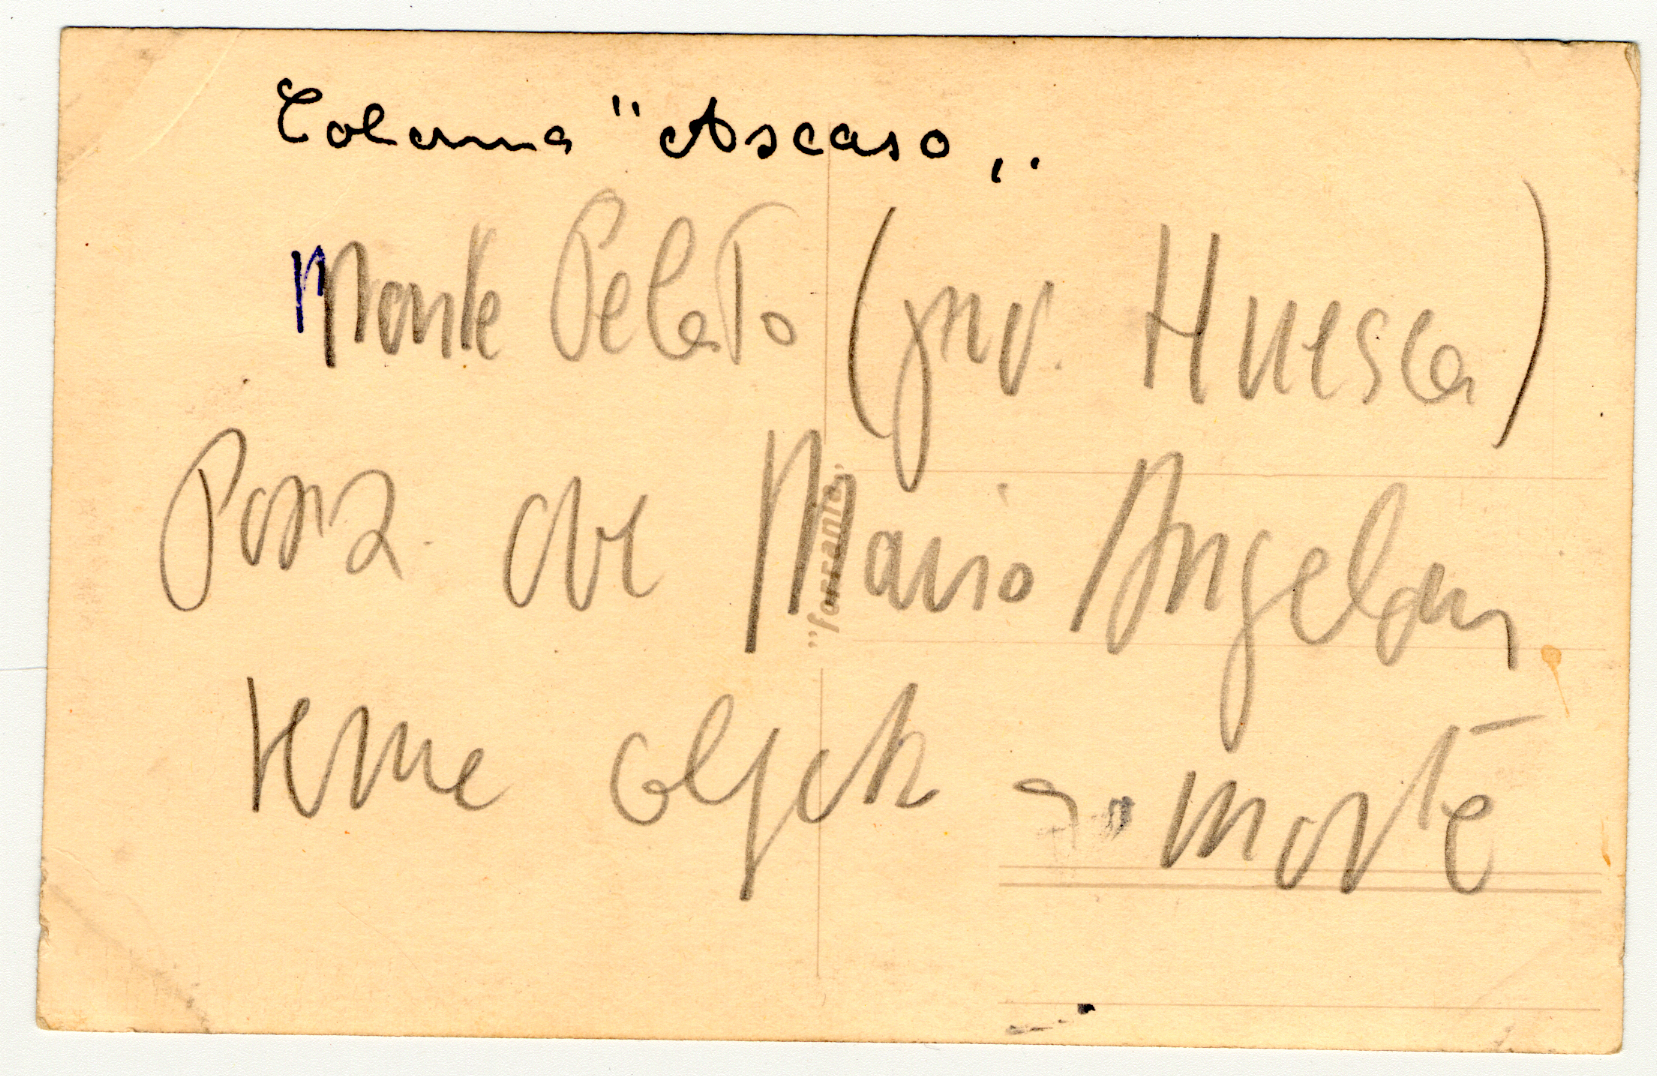 Colonna "Ascaso„.
Monte Pelato (prov. Huesca)
Posiz. ove Mario Angeloni
venne colpito a morte
"ferrania"